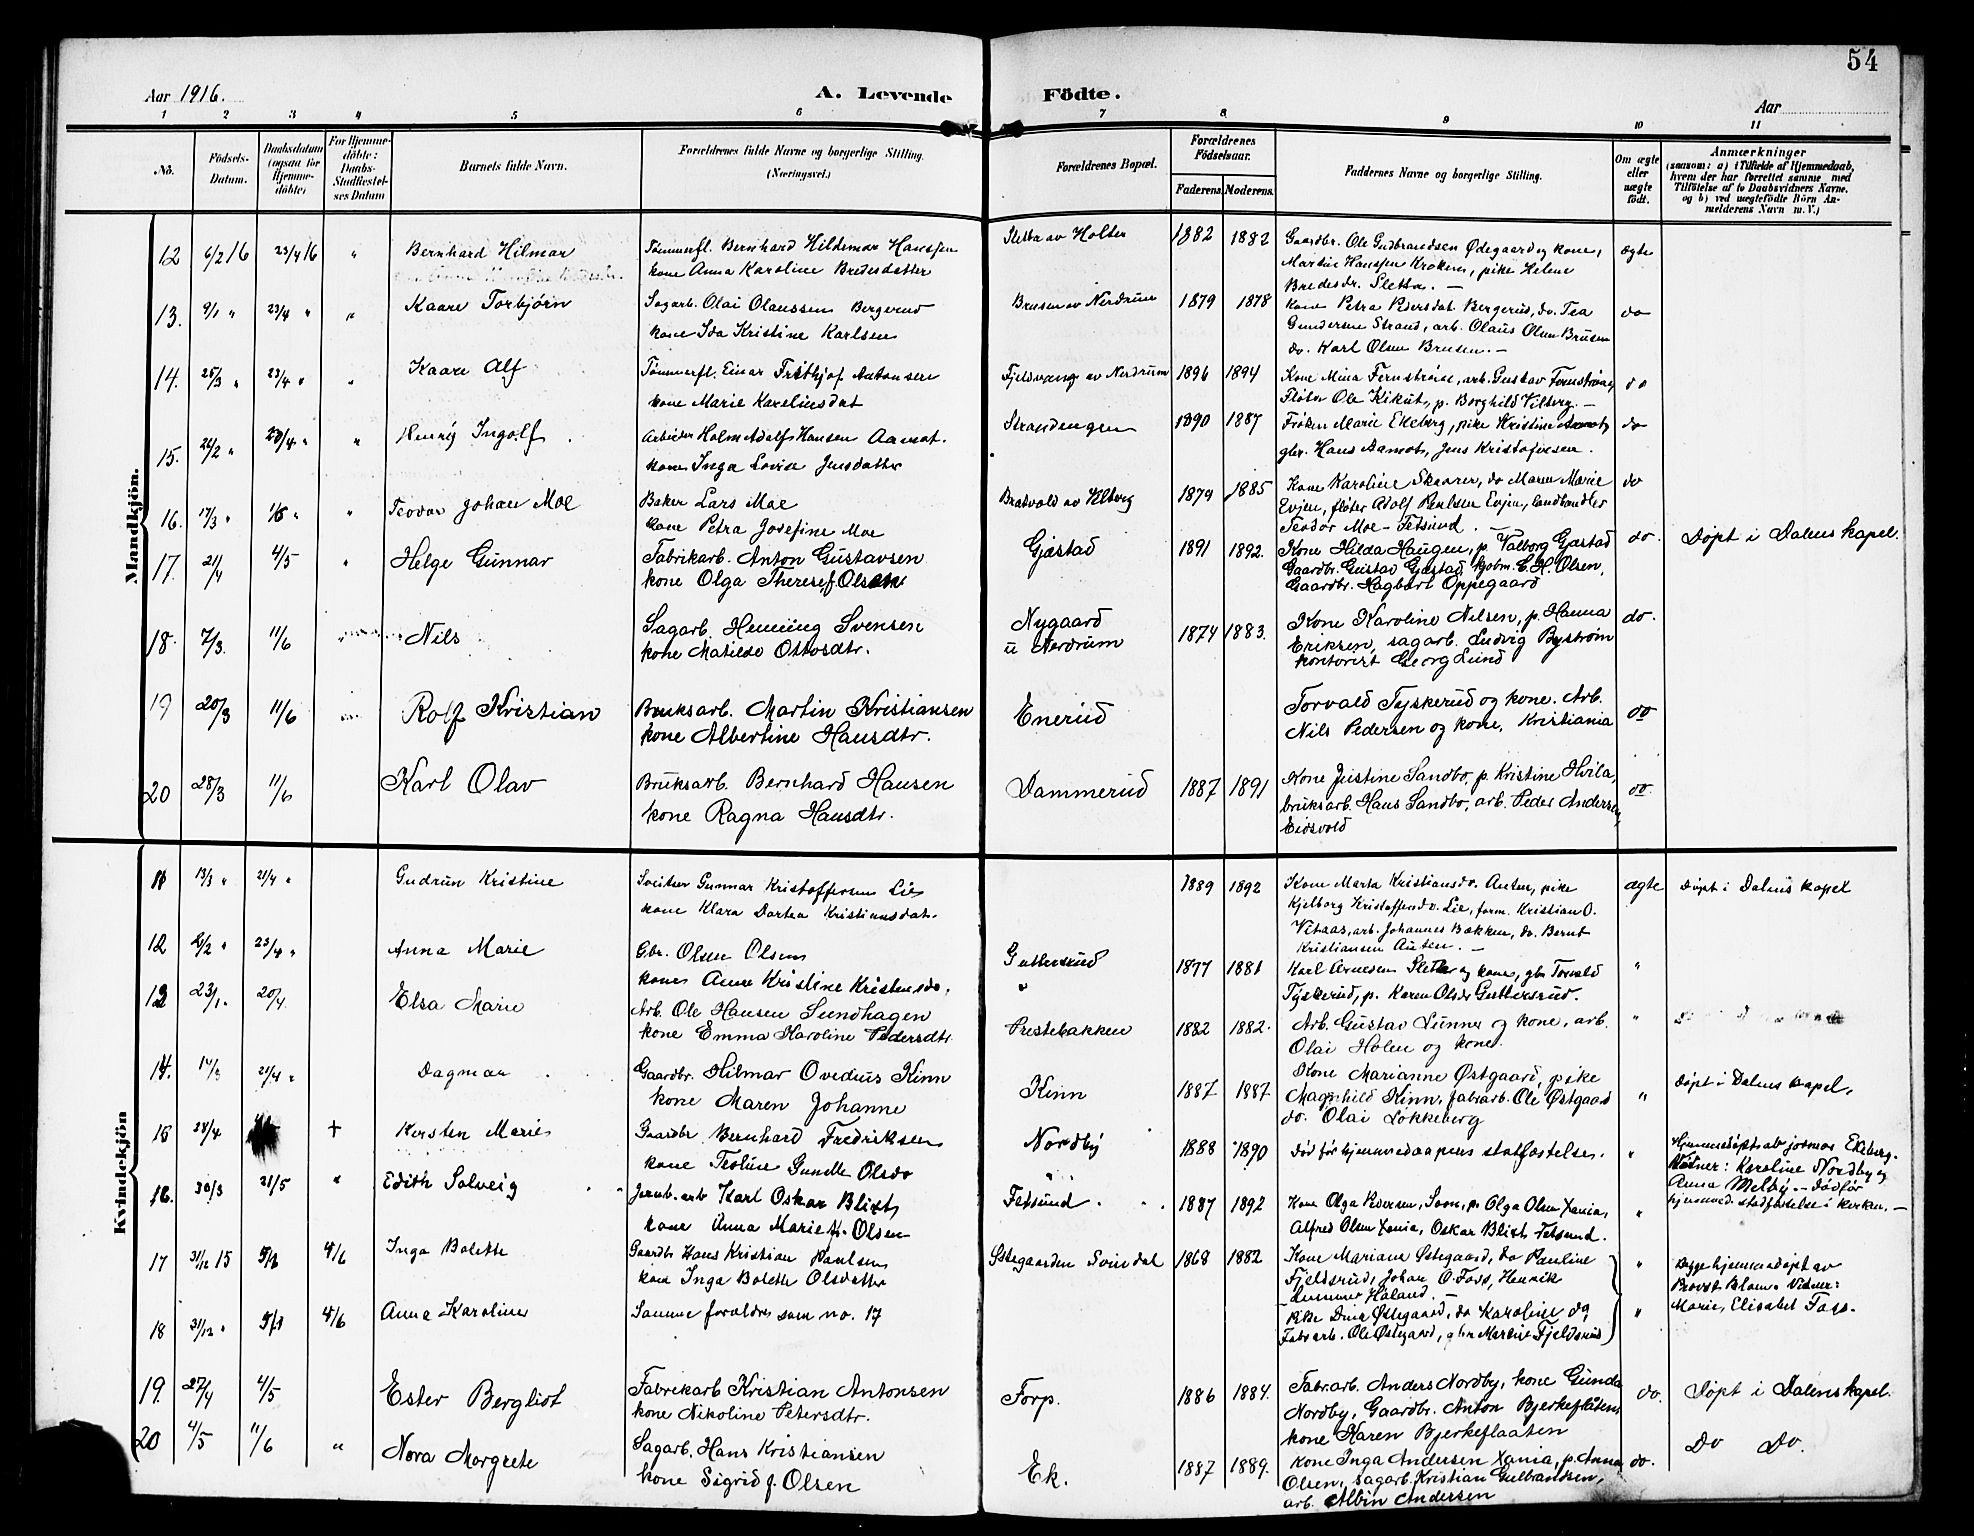 54
Aar 1916.
A. Levende Födte.
Aar
1 2 3 4 5 6 7 8 9 10 11
No.
Födsels-
Datum.
Daabsdatum
(ogsaa for
Hjemme-
döbte)
For Hjemme-
döbte:
Daabs-
Stadfæstel-
ses Datum
Barnets fulde Navn.
Forældrenes fulde Navne og borgerlige Stilling.
(Næringsvei.)
Forældrenes Bopæl.
Forældrenes
Födselsaar.
Faderens. Moderens.
Faddernes Navne og borgerlige Stilling.
Om ægte
eller
uægte
födt.
Anmærkninger
(saasom: a) i Tilfælde af Hjemmedaab,
hvem der har forrettet samme med
Tilföielse af to Daabsvidners Navne.
og b) ved uægtefödte Börn An-
melderens Navn m. V.)
Mandkjön.
12 6/2 16 23/4 16 " Bernhard Hilmar
Tömmerfl. Bernhard Hildemar Hanssen
kone Anna Karoline Bredesdatter
Sletta av Holter 1882 1882
Gaardbr. Ole Gudbrandsen Ødegaard og kone,
Martin Hanssen Kroken, pike Helene
Bredesdr. Sletta. —
ægte
13. 9/1 " 23/4 " " Kaare Torbjørn
Sagarb. Olai Olaussen Bergerud
kone Ida Kristine Karlsen
Brusen av Nerdrum 1879 1878
Kone Petra Pedersdat. Bergerud, do. Tea
Gundersen Strand, arb. Olaus Olsen Brusen
do. Karl Olsen Brusen. —
do
14. 25/3 " 23/4 " " Kaare Alf
Tömmerfl. Einar Frithjof Antonsen
kone Marie Kareliusdat
Fjeldvang av Nerdrum 1896 1894
Kone Mina Fernstrøm, arb. Gustav Fernstrøm,
Fløter Ole Kikut, p. Borghild Vilberg. —
do
15. 22/2 " 23/4 " " Henry Ingolf
Arbeider Holm Adolf Hansen Aamot.
kone Inga Lovise Jensdatter
Strandengen 1890 1887
Frøken Marie Ekeberg, pike Kristine Aamot,
gbr. Hans Aamot, Jens Kristofersen.
do
16. 17/3 " 1/5 " " Teodor Johan Moe
Baker Lars Moe
kone Petra Josefine Moe
Bratvold av Vilberg 1879 1885
Kone Karoline Skaarer, do Maren Marie
Evjen, fløter Adolf Paulsen Evjen, landhandler
Teodor Moe - Fetsund. —
do
17. 21/4 4/5 " Helge Gunnar
Fabrikarb. Anton Gustavsen
kone Olga Therese f. Olsen
Gjæstad 1891 1892.
Kone Hilda Haugen, p. Valborg Gjæstad
Gaardbr. Gustav Gjæstad, kjøbm. C. H. Olsen,
Gaardbr. Hagbart Oppegaard
do. Døpt i Dalens kapel.
18. 7/3. 11/6 Nils
Sagarb. Henning Svensen
kone Matilde Ottosdtr.
Nygaard
u Nerdrum
1874 1883.
Kone Karoline Nilsen, p. Hanna
Eriksen, sagarb. Ludvig Byström
kontorist Georg Lund
do.
19 20/3 11/6 Rolf Kristian
Bruksarb. Martin Kristiansen
kone Albertine Hansdtr.
Enerud
Torvald Tyskerud og kone. Arb.
Nils Pedersen og kone, Kristiania
do
20 28/3 11/6 Karl Olav
Bruksarb. Bernhard Hansen
kone Ragna Hansdtr.
Dammerud 1887 1891
Kone Justine Sandbo, p. Kristine Hvila,
bruksarb. Hans Sandbo, arb. Peder Andersen,
Eidsvold
do.
Kvindekjön
11 13/3 " 21/4 " Gudrun Kristine
Sveitser Gunnar Kristoffersen Lie
kone Klara Dortea Kristiansdat.
1889 1892
Kone Marta Kristiansdr. Auten, pike
Kjelborg Kristoffersdr. Lie, form. Kristian O.
Vitaas, arb. Johannes Bakken, do. Bernt
Kristiansen Auten. —
ægte Døpt i Dalens kapel
12 2/2 " 23/4 " Anna Marie
Gbr. Olsen Olsen
kone Anne Kristine Kristensdr.
Guttersrud 1877 1881
Karl Arnesen Sletta og kone, gbr Torvald
Tyskerud, p. Karen Olsdr Guttersrud.
"
13 23/1. 20/4. Elsa Marie
Arb. Ole Hansen Sundhagen
kone Emma Karoline Pedersdtr
Prestebakken 1882 1882.
Arb. Gustav Lunner og kone, arb.
Olai Holen og kone.
"
14. 14/3 21/4 " Dagmar
Gaardbr. Hilmar Ovedius Kinn
kone Maren Johanne
Kinn 1887 1887
Kone Marianne Østgaard, pike
Magnhild Kinn, fabrarb. Ole Østgaard
do. Olai Løkkeberg
" Døpt i Dalens kapel.
15 28/4 + Kirsten Marie
Gaardbr Bernhard Fredriksen
kone Teoline Gunelle Olsdr
Nordby 1888 1890
Død før hjemmedaapens statfæstelse.
" Hjemmedøpt av jormor Ekeberg.
Vidner: Karoline Nordby og
Anna Melby. — Død før
hjemmed. stadfæstelse i kirken. —
16. 30/3 21/5 " Edith Solveig
Jernb. arb Karl Oskar Blixt,
kone Anna Marie f. Olsen
Fetsund 1887 1892
Kone Olga Pedersen, Svon, p. Olga Olsen Xania,
Alfred Olsen Xania, Oskar Blixt Fetsund.
"
17 31/12 15 5/1 4/6 Inga Bolette
Gaardbr Hans Kristian Paulsen
kone Inga Bolette Olsdatter
Østegaarden Svindal 1868 1882
Kone Mariane Østegaard, do Pauline
Fjeldsrud, Johan O. Foss, Henrik
Lummer Haland. —
" Begge hjemmedøpt av
Provst Blom. Vidner:
Marie, Elisabet Foss.
18 31/12 " 5/1 4/6 Anna Karoline
Samme foreldre som no. 17
Pike Dina Østegaard, do Karoline do,
Fabr arb. Ole Østegaard, gbr Martin Fjeldsrud
"
19. 27/4 4/5 Ester Bergliot
Fabrikarb Kristian Antonsen
kone Nikoline Petersdtr.
Forp. 1886 1884.
Fabr. arb. Anders Nordby, kone Gunda
Nordby, Gaardbr. Anton Bjerkeflåten,
kone Karen Bjerkeflaaten
do. Døpt i Dalens kapel
20 4/5 11/6 " Nora Margrete
Sagarb. Hans Kristiansen
kone Sigrid f. Olsen
Ek. 1887 1889.
Kone Inga Andersen Xania, p. Anna
Olsen, sagarb. Kristian Gulbrandsen,
arb. Albin Andersen
do. Do Do.